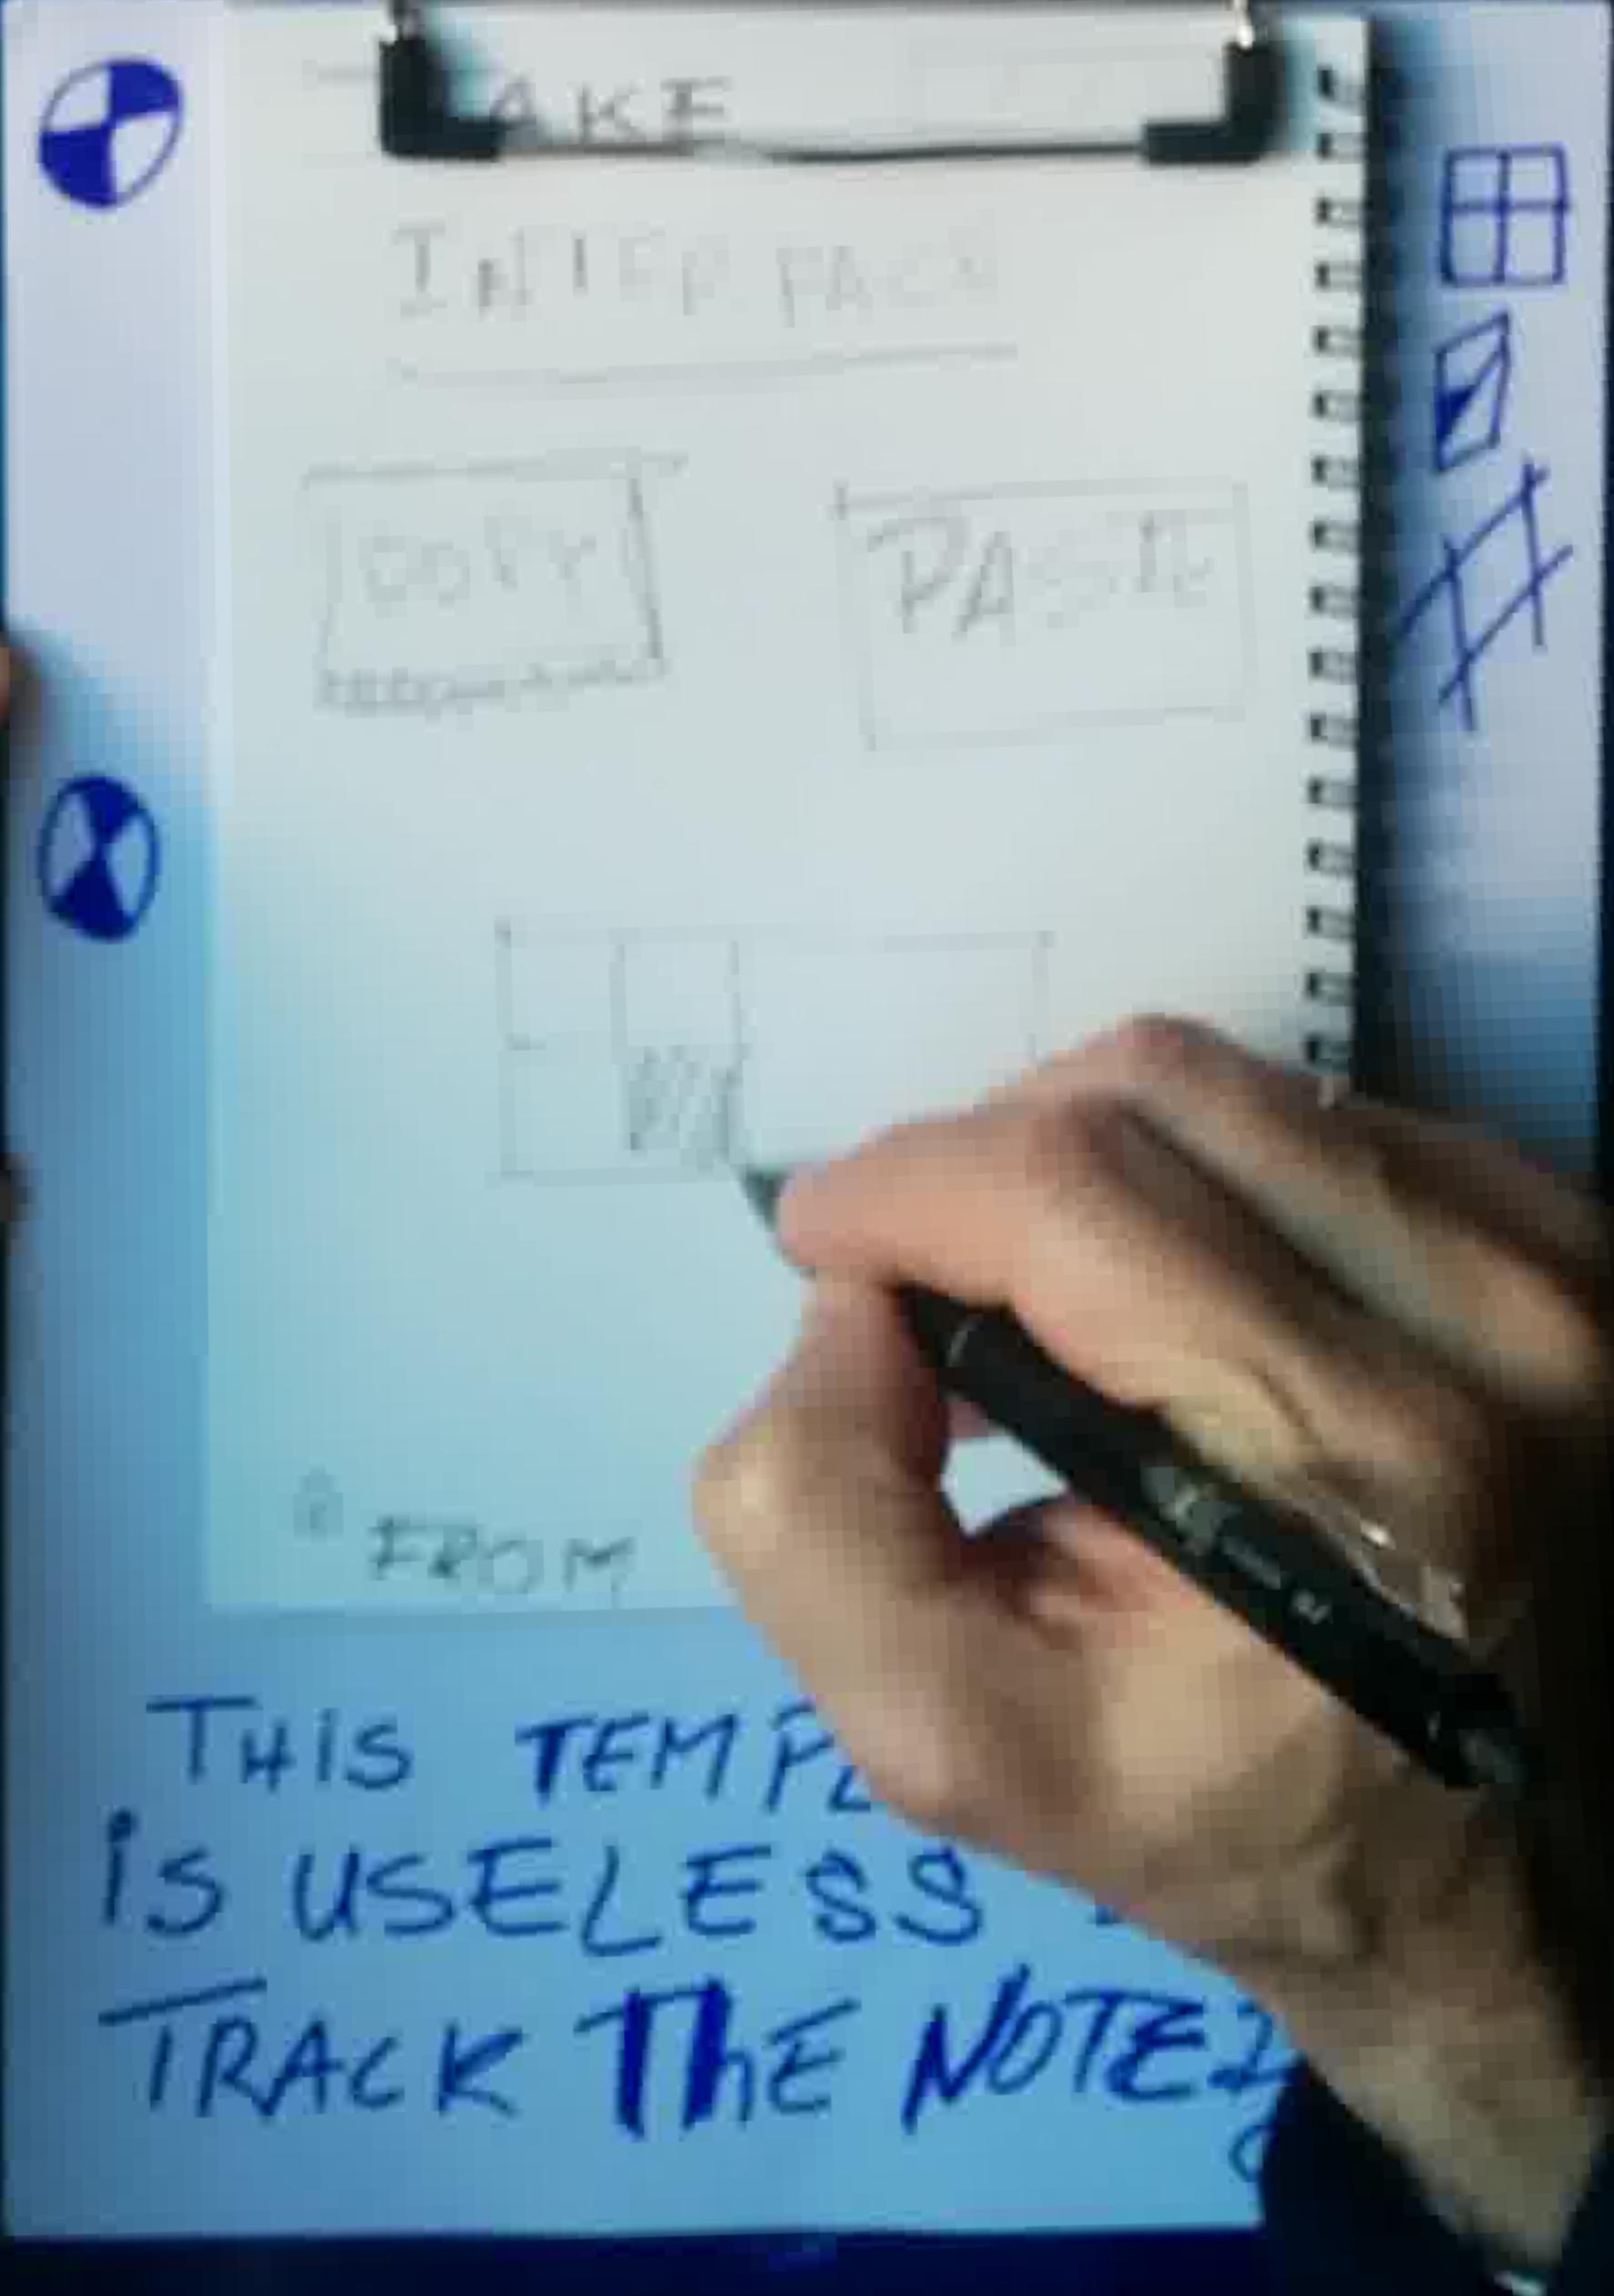 AKE
INTERFACE
COPY
PASTE
FROM
THiS TEMPL
iS USELESS
TRACK ThE NOTE